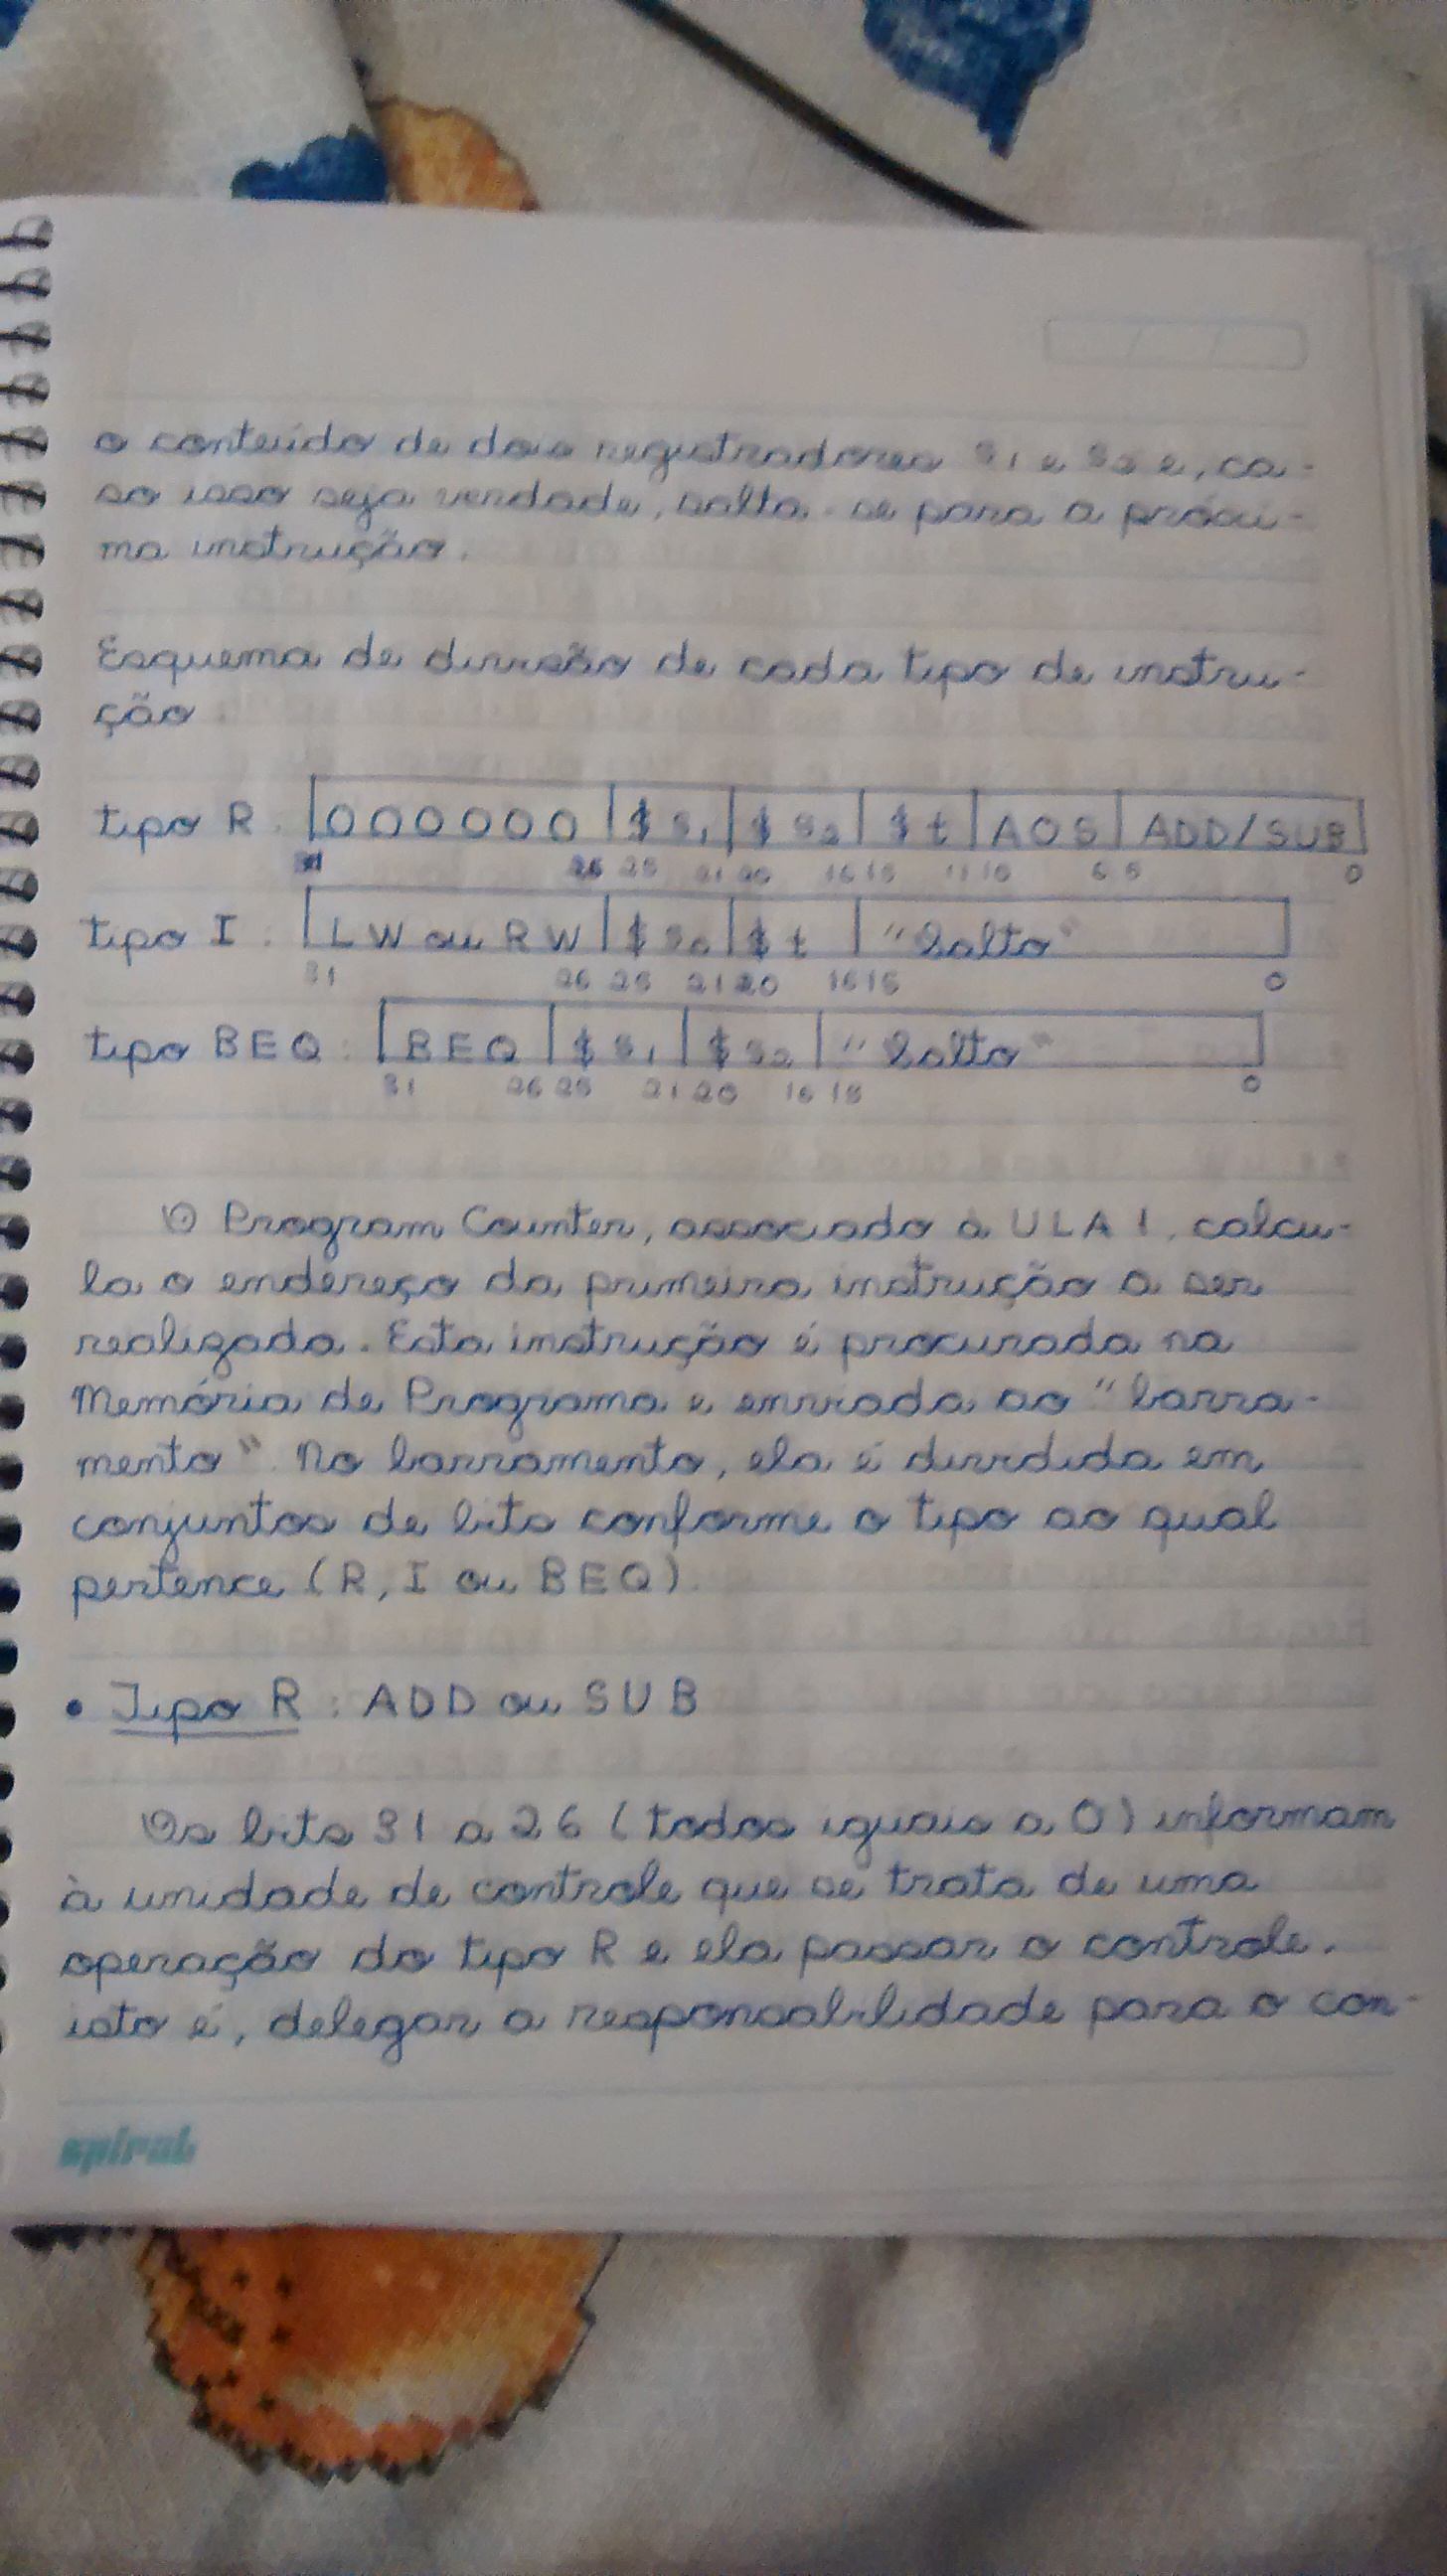 o conteúdo de dois registradores s1 e s2 e, ca-
so isso seja verdade, salta-se para a próxi-
ma instrução.
Esquema de divisão de cada tipo de instru-
ção
tipo R: 000000 | $s1 | $s2 | $t | AOS | ADD/SUB
31 26 25 21 20 16 15 11 10 6 5 0
tipo I: LW ou RW | $so | $t | "Salto"
31 26 25 21 20 16 15 0
tipo BEQ: BEQ | $s1 | $s2 | "Salto"
31 26 25 21 20 16 15 0
O Program Counter, associado à ULA 1, calcu-
la o endereço da primeira instrução a ser
realizada. Esta instrução é procurada na
Memória de Programa e enviada ao "barra-
mento". No barramento, ela é dividida em
conjuntos de bits conforme o tipo ao qual
pertence (R, I ou BEQ).
• Tipo R: ADD ou SUB
Os bits 31 a 26 (todos iguais a 0) informam
à unidade de controle que se trata de uma
operação do tipo R e ela passar o controle,
isto é, delegar a responsabilidade para o con-
spiral